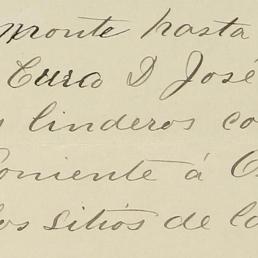 monte hasta
Cura D José
linderos co
oniente á O
los sitios de la